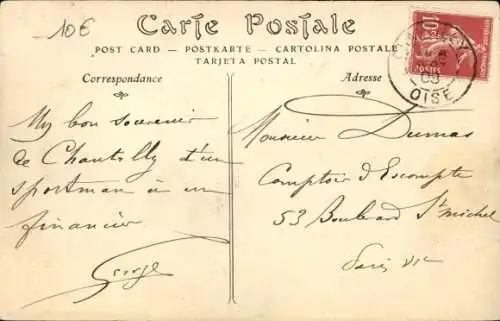 10€
Carte Postale
POST CARD — POSTKARTE — CARTOLINA POSTALE
TARJETA POSTAL
Correspondance
My bon souvenir
de Chantilly d'un
sportman à un
financier
Adresse
Monsieur Dumas
Comptoir d'Escompte
53 Boulevard St Michel
Paris
10
POSTES
OISE